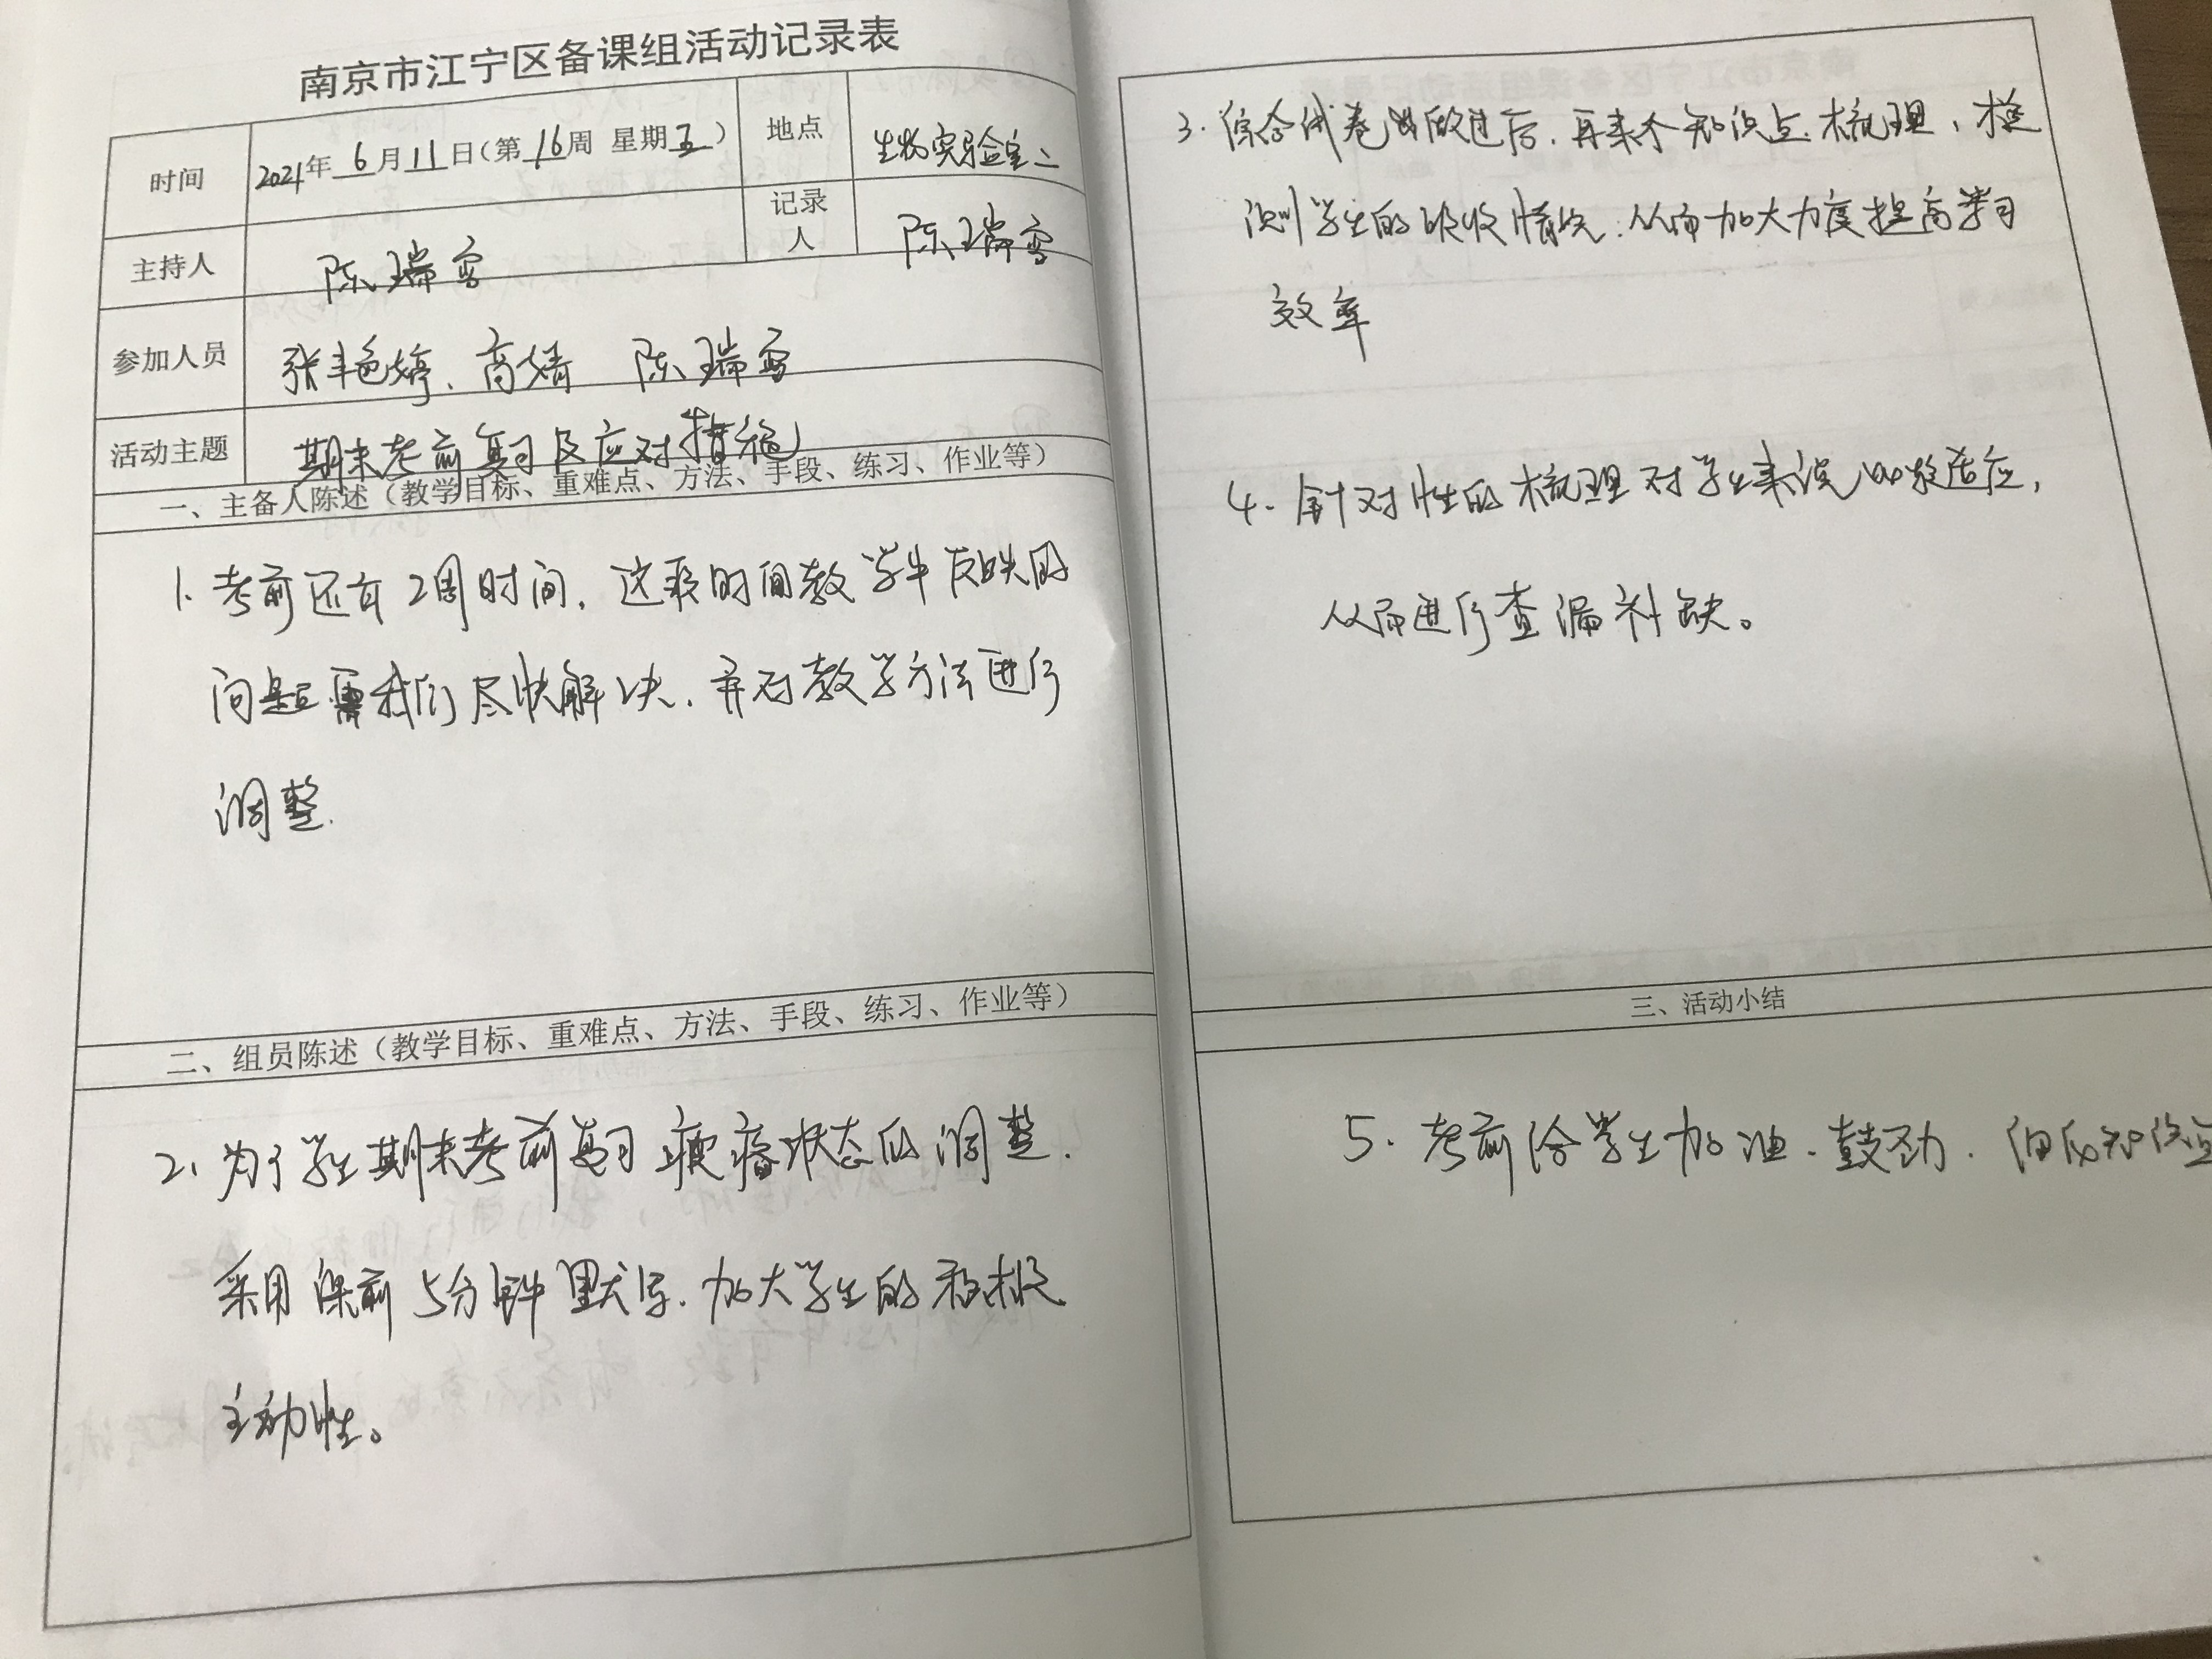 南京市江宁区备课组活动记录表
时间 2021年 6 月 11 日(第 16 周 星期 五 ) 地点 生物实验室二
主持人 陈瑞雪 记录人 陈瑞雪
参加人员 张艳婷、高婧 陈瑞雪
活动主题 期末考前复习及应对措施
一、主备人陈述(教学目标、重难点、方法、手段、练习、作业等)
1. 考前还有2周时间,这段时间教学中反映的
问题需我们尽快解决,并对教学方法进行
调整.
二、组员陈述(教学目标、重难点、方法、手段、练习、作业等)
2、为了学生期末考前复习疲惫状态的调整.
采用课前5分钟默写.加大学生的积极
主动性。
3. 综合试卷做过后,再来个知识点梳理,检
测学生的吸收情况.从而加大力度提高学习
效率
4. 针对性的梳理对学生来说比较适应,
从而进行查漏补缺。
三、活动小结
5. 考前给学生加油.鼓劲.